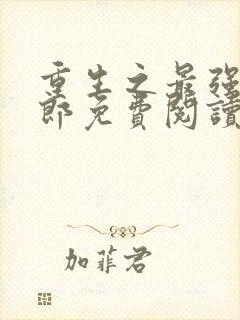 重生之最强
郎免費閱讀
加菲君